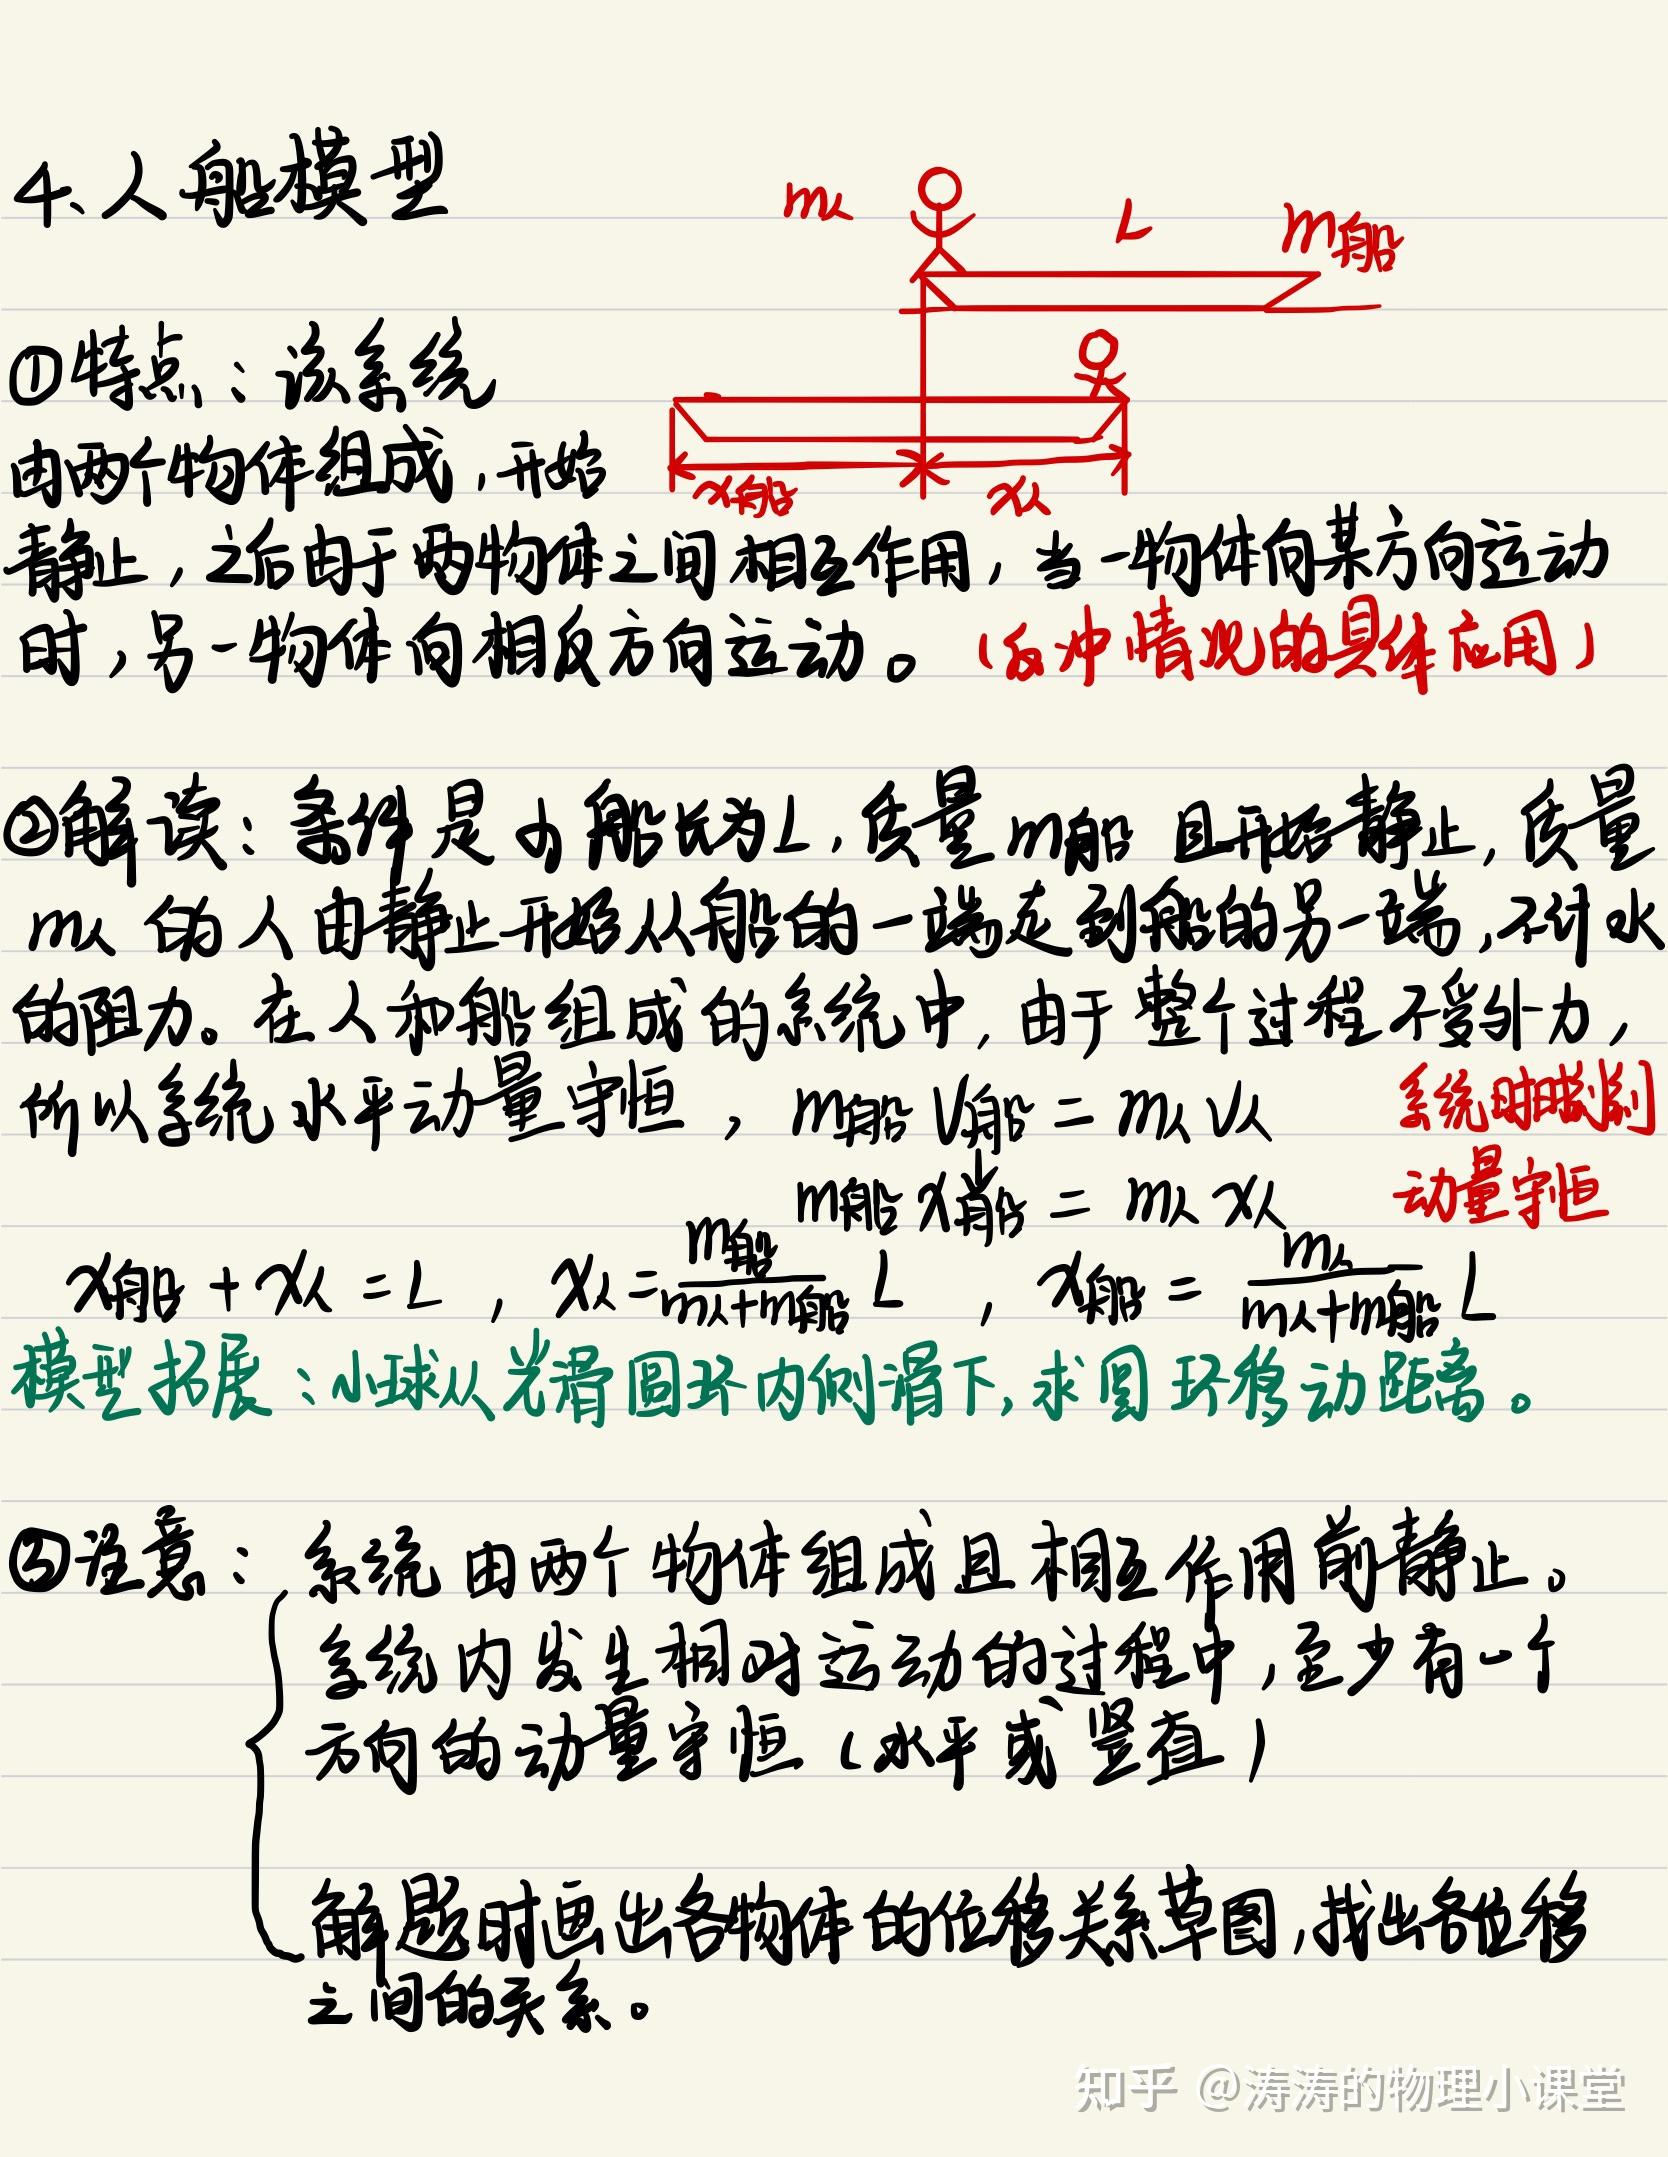 4、人船模型
m人 L m船
①特点：该系统
由两个物体组成，开始
x船 x人
静止，之后由于两物体之间相互作用，当一物体向某方向运动
时，另一物体向相反方向运动。（反冲情况的具体应用）
②解读：条件是 船长为L，质量m船 且开始静止，质量
m人 的人由静止开始从船的一端走到船的另一端，不计水
的阻力。在人和船组成的系统中，由于整个过程不受外力，
所以系统水平动量守恒，m船v船＝m人v人 系统时时刻刻
m船x船＝m人x人 动量守恒
x船＋x人＝L，x人＝m船/(m人+m船) L，x船＝m人/(m人+m船) L
模型拓展：小球从光滑圆环内侧滑下，求圆环移动距离。
③注意：系统由两个物体组成且相互作用前静止。
系统内发生相对运动的过程中，至少有一个
方向的动量守恒（水平或竖直）
解题时画出各物体的位移关系草图，找出各位移
之间的关系。
知乎 @涛涛的物理小课堂